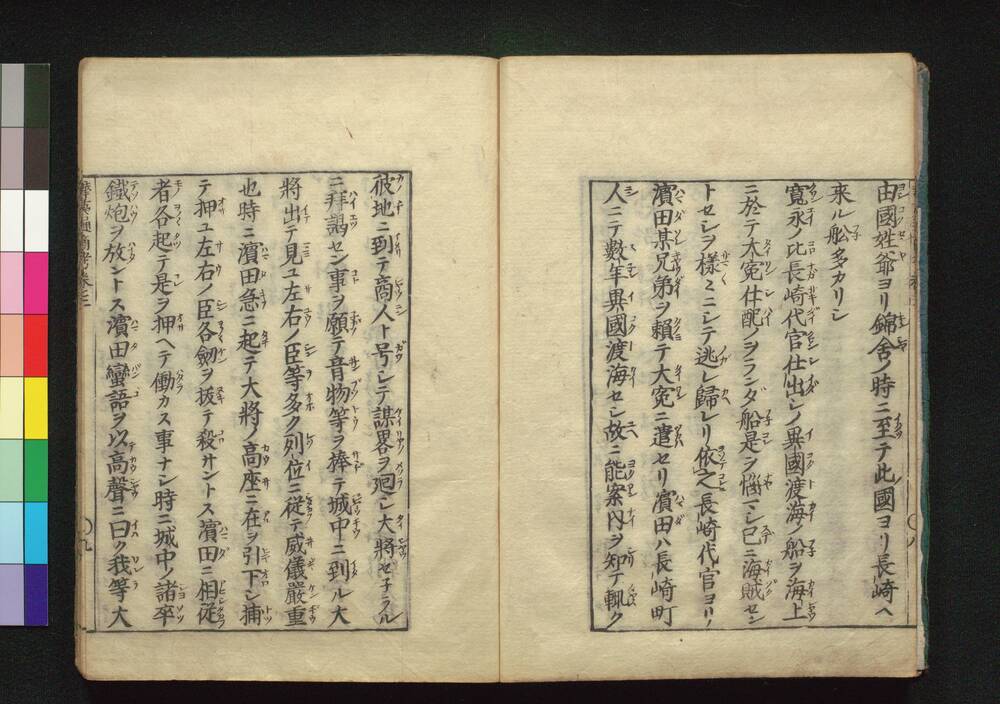 由國姓爺ヨリ錦舎ノ時ニ至テ此國ヨリ長崎ヘ
来ル舩多カリシ
寛永ノ比長崎代官仕出シノ異國渡海ノ船ヲ海上
ニ於テ大寃仕配ヲランダ船是ヲ悩マシ已ニ海賊セン
トセシヲ様々ニシテ逃レ歸レリ依之長崎代官ヨリ
濱田某兄弟ヲ頼テ大寃ニ遣セリ濱田ハ長崎町
人ニテ數年異國渡海セシ故ニ能案内ヲ知テ輙ク
彼地ニ到テ商人ト号シテ謀畧ヲ廻シ大將セチラル
ニ拜謁セン事ヲ願テ音物等ヲ捧テ城中ニ到ル大
將出テ見ユ左右ノ臣等多ク列位ニ従テ威儀嚴重
也時ニ濱田急ニ起テ大將ノ高座ニ在ヲ引下シ捕
テ押ユ左右ノ臣各劔ヲ拔テ殺サントス濱田ニ相従
者各起テ是ヲ押ヘテ働カス事ナシ時ニ城中ノ諸卒
鐵炮ヲ放ントス濱田蠻語ヲ以高聲ニ曰ク我等大
華夷通商考巻之二
〇九